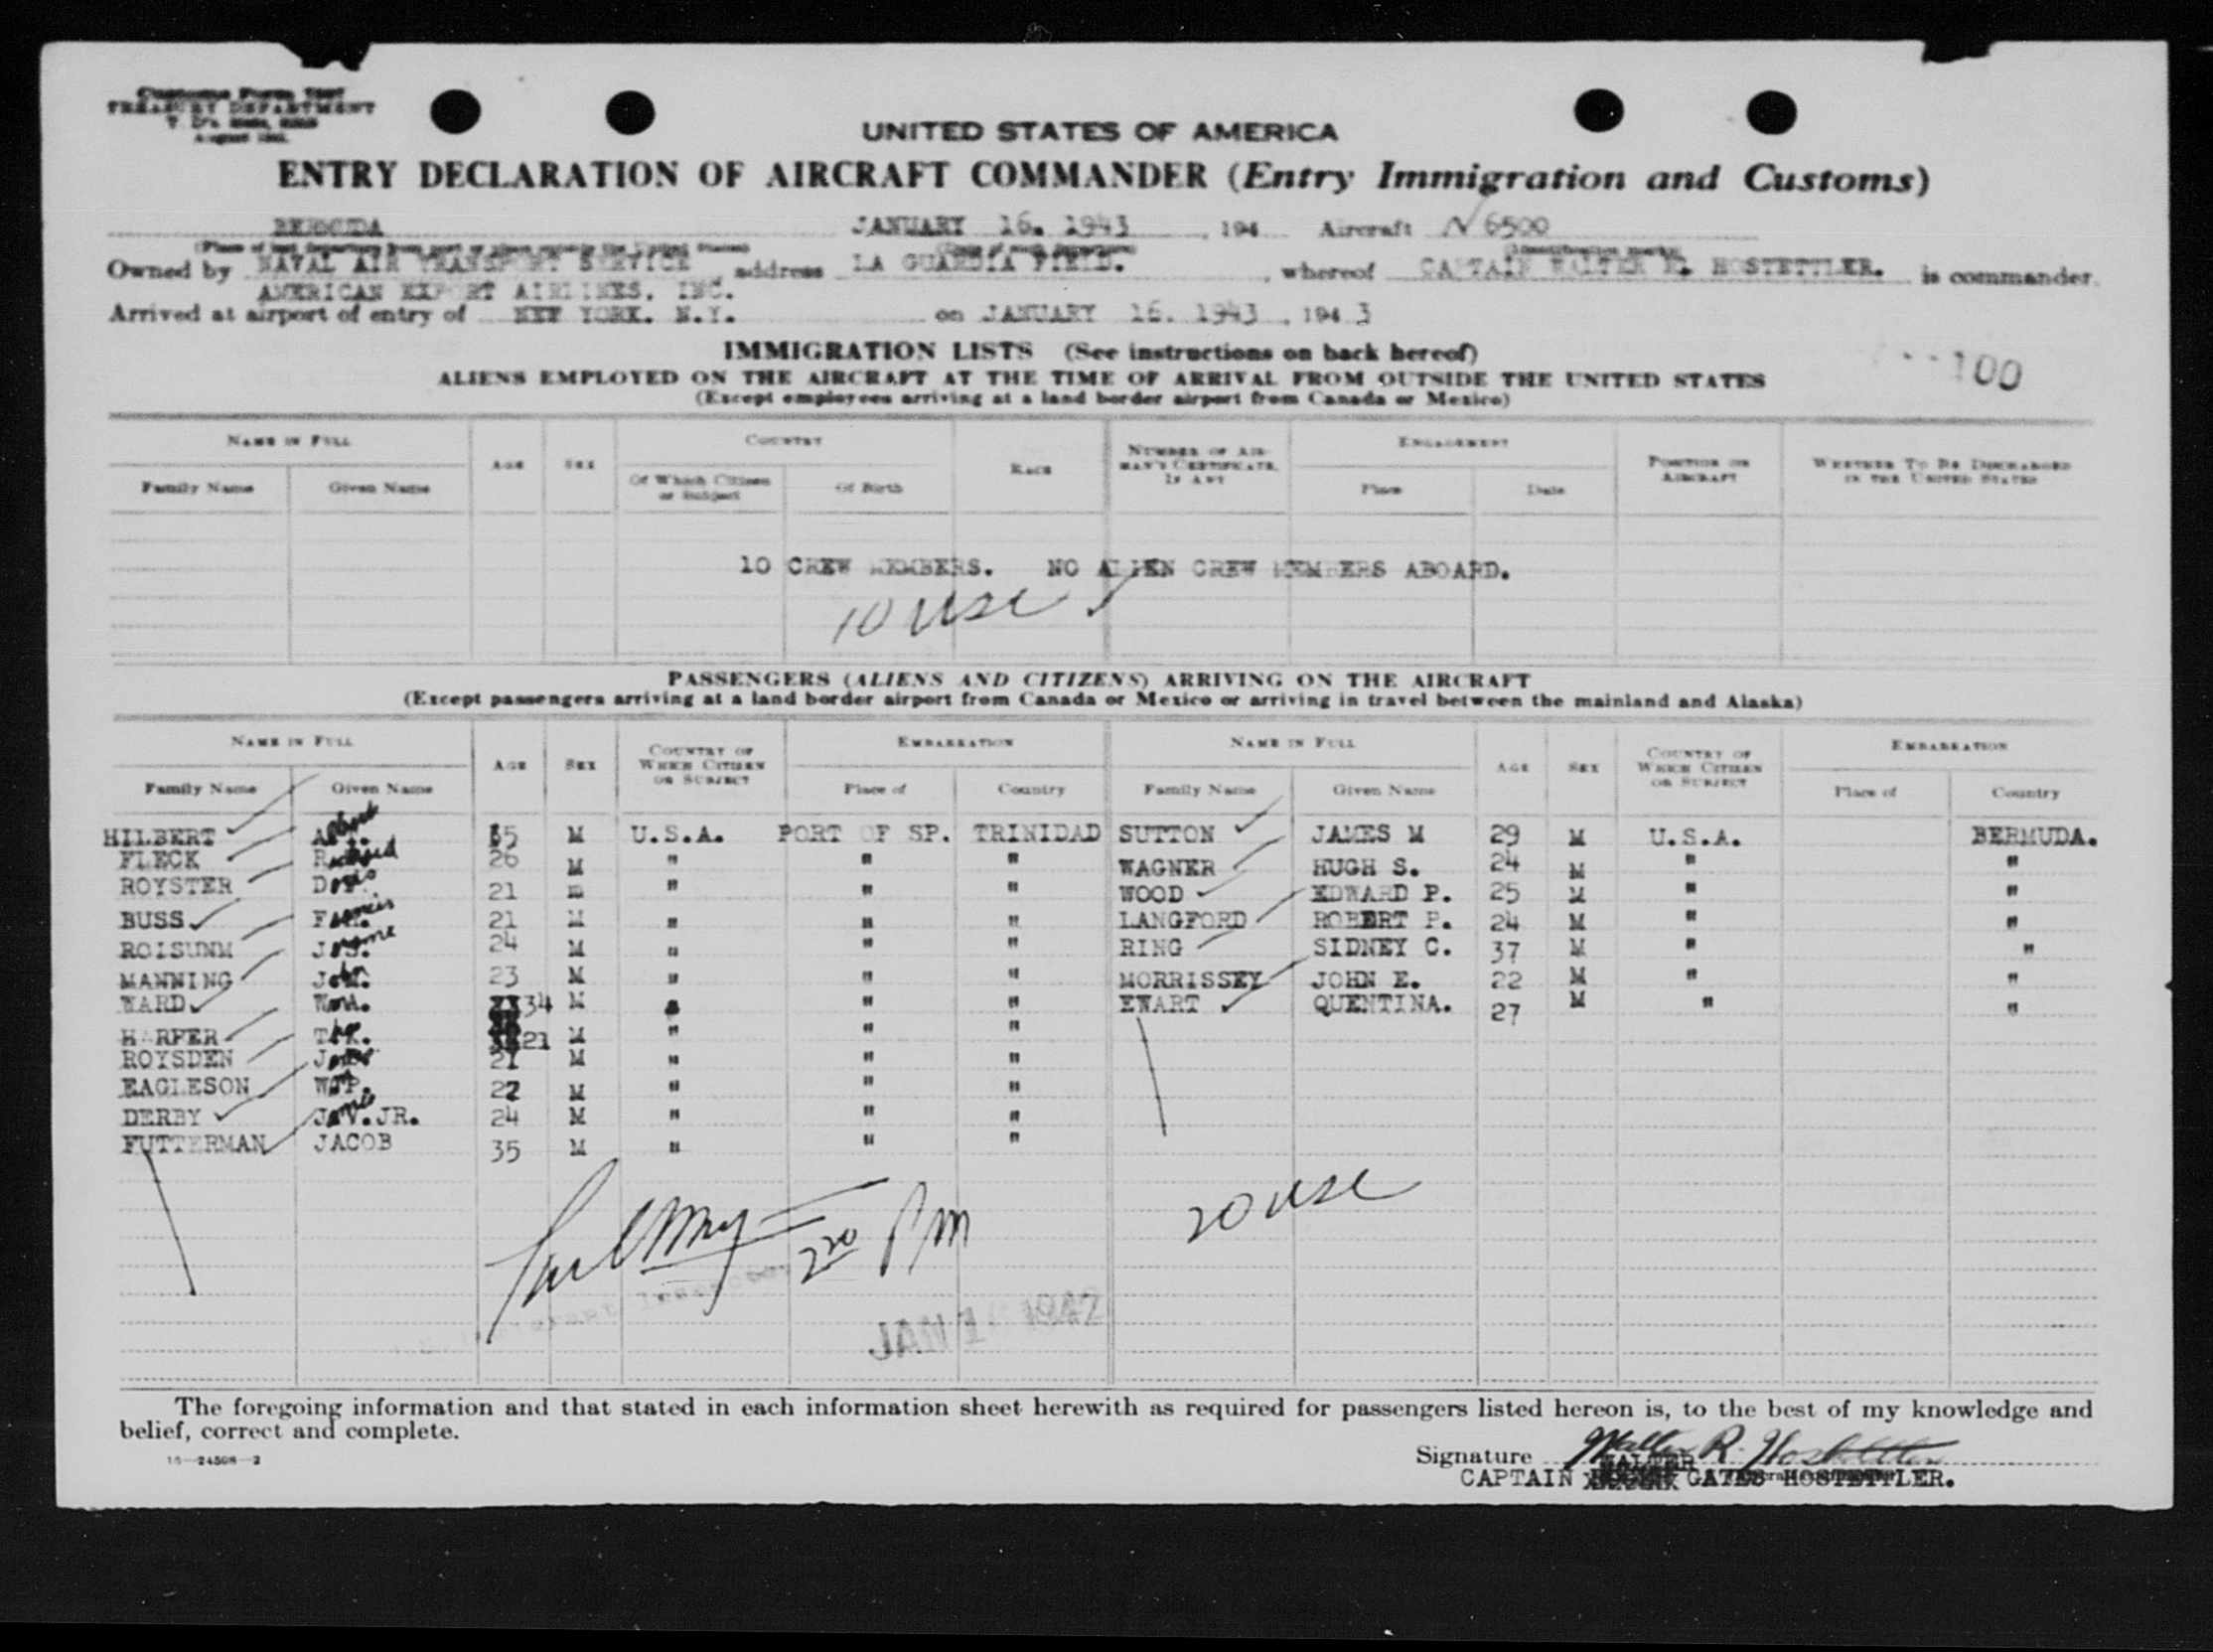 TREASURY DEPARTMENT
UNITED STATES OF AMERICA
ENTRY DECLARATION OF AIRCRAFT COMMANDER (Entry Immigration and Customs)
BERMUDA JANUARY 16. 1943, 194 Aircraft N 6500
Owned by NAVAL AIR TRANSPORT SERVICE, address LA GUARDIA FIELD., whereof CAPTAIN WALTER R. HOSTETTLER. is commander.
AMERICAN EXPORT AIRLINES. INC.
Arrived at airport of entry of NEW YORK. N.Y. on JANUARY 16. 1943, 194 3
IMMIGRATION LISTS (See instructions on back hereof)
100
ALIENS EMPLOYED ON THE AIRCRAFT AT THE TIME OF ARRIVAL FROM OUTSIDE THE UNITED STATES
(Except employees arriving at a land border airport from Canada or Mexico)
NAME IN FULL AGE SEX COUNTRY RACE NUMBER OF AIRMAN'S CERTIFICATE, IF ANY ENGAGEMENT POSITION ON AIRCRAFT WHETHER TO BE DISCHARGED IN THE UNITED STATES
Family Name Given Name Of Which Citizen or Subject Of Birth Place Date
10 CREW MEMBERS. NO ALIEN CREW MEMBERS ABOARD.
10 USC
PASSENGERS (ALIENS AND CITIZENS) ARRIVING ON THE AIRCRAFT
(Except passengers arriving at a land border airport from Canada or Mexico or arriving in travel between the mainland and Alaska)
NAME IN FULL AGE SEX COUNTRY OF WHICH CITIZEN OR SUBJECT EMBARKATION NAME IN FULL AGE SEX COUNTRY OF WHICH CITIZEN OR SUBJECT EMBARKATION
Family Name Given Name Place of Country Family Name Given Name Place of Country
HILBERT Albert 35 M U.S.A. PORT OF SP. TRINIDAD SUTTON JAMES M 29 M U.S.A. BERMUDA.
FLECK Richard 26 M " " " WAGNER HUGH S. 24 M " "
ROYSTER 21 m " " " WOOD EDWARD P. 25 M " "
BUSS Francis 21 M " " " LANGFORD ROBERT P. 24 M " "
ROISUNM Jerome 24 M " " " RING SIDNEY C. 37 M " "
MANNING John 23 M " " " MORRISSEY JOHN E. 22 M " "
WARD Wm. 34 M " " " EWART QUENTINA. 27 M " "
HARPER 21 M " " "
ROYSDEN 21 M " " "
EAGLESON 22 M " " "
DERBY James JR. 24 M " " "
FUTTERMAN JACOB 35 M " " "
20 USC
2 20 PM
JAN 1 1942
The foregoing information and that stated in each information sheet herewith as required for passengers listed hereon is, to the best of my knowledge and
belief, correct and complete.
16—24508—2
Signature Walter R. Hostettler
WALTER
CAPTAIN GATES HOSTETTLER.